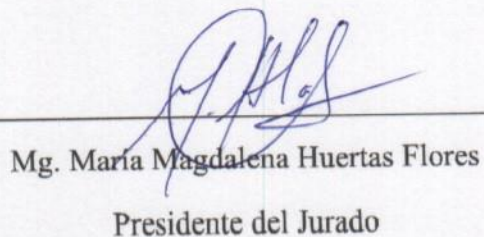 Mg. María Magdalena Huertas Flores
Presidente del Jurado